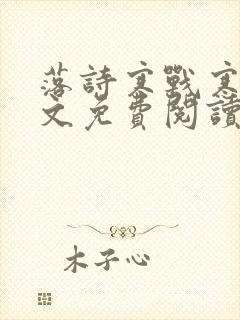 落詩寒戰寒
文免費閱讀
木子心